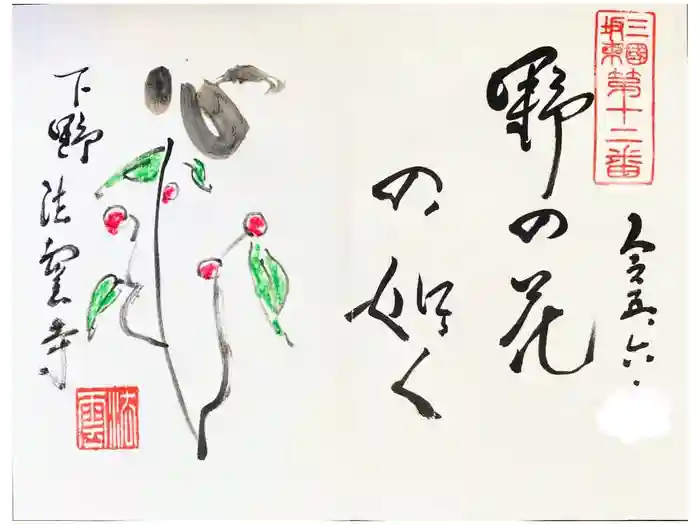 三國
坂東
第十二番
令五、六、
野の花
の如く
心
下野 法雲寺
法雲